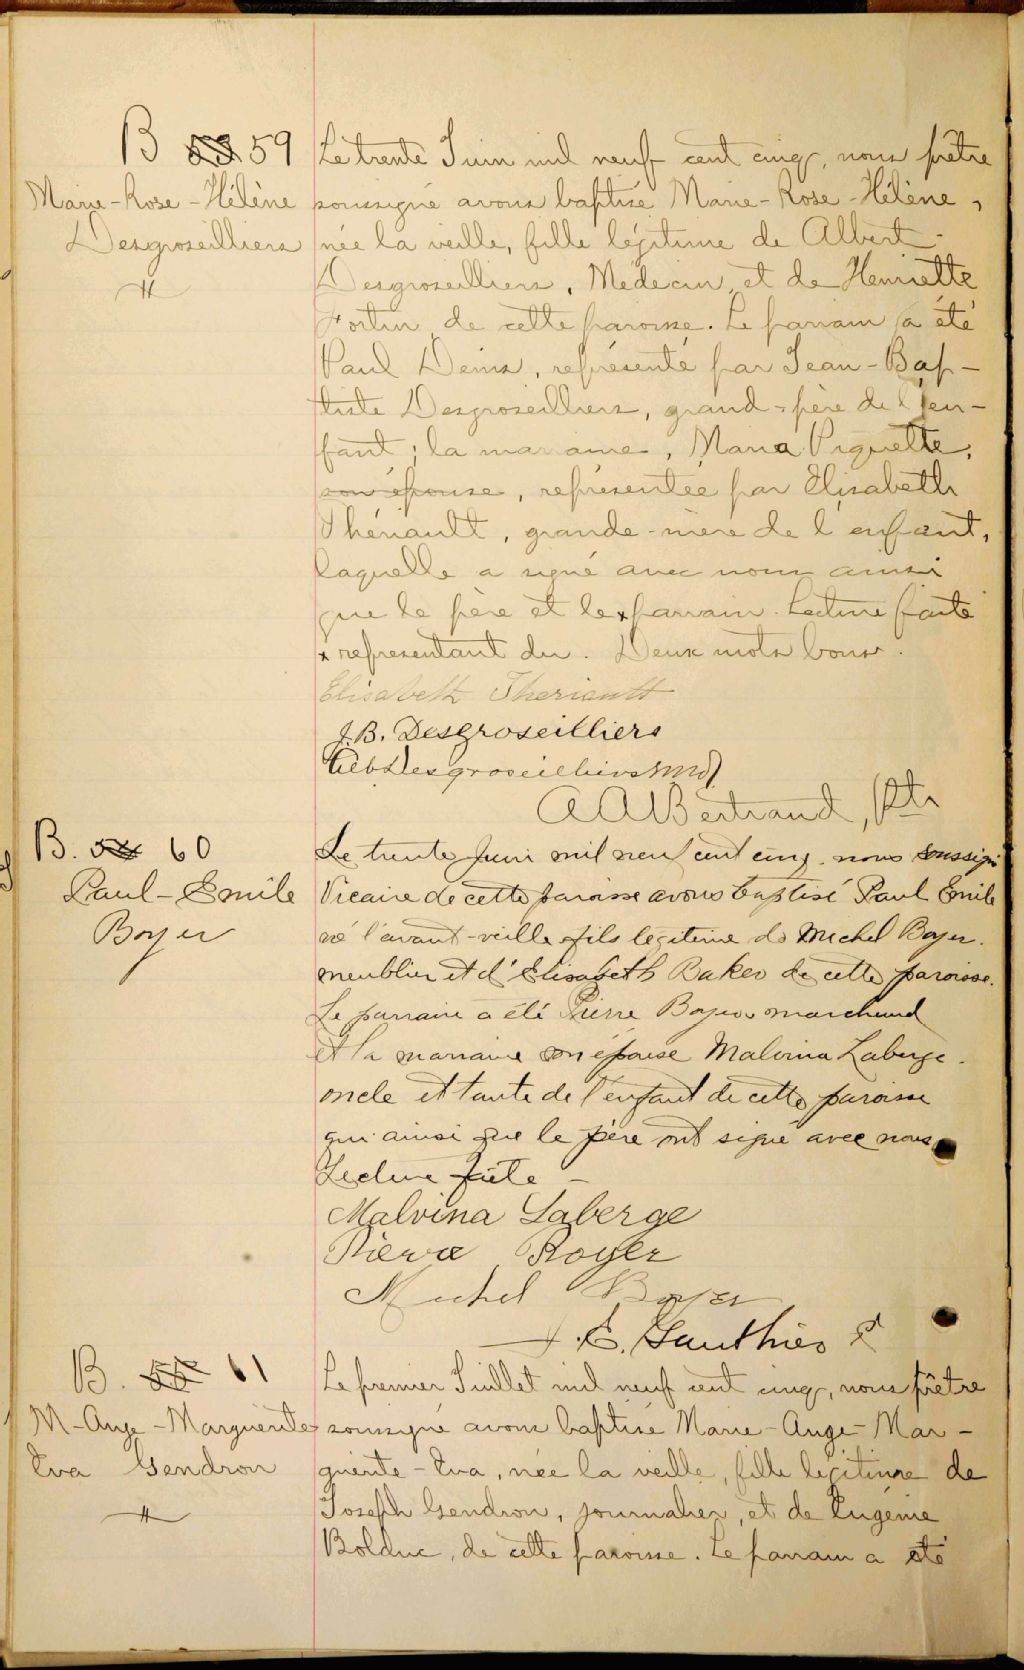 B 53 59
Marie-Rose-Hélène
Desgroseilliers
Le trente Juin mil neuf cent cinq, nous prêtre
soussigné avons baptisé Marie-Rose-Hélène,
née la veille, fille légitime de Albert
Desgroseilliers, Médecin, et de Henriette
Fortin, de cette paroisse. Le parrain a été
Paul Denis, représenté par Jean-Bap-
tiste Desgroseilliers, grand-père de l'en-
fant; la marraine, Maria Piquette,
son épouse, représentée par Elisabeth
Thériault, grande-mère de l'enfant,
laquelle a signé avec nous ainsi
que le père et le x parrain. Lecture faite
x representant du. Deux mots bons.
Elisabeth Theriault
J.B. Desgroseilliers
Alb Desgroseilliers md
A A Bertrand, Ptr
B. 54 60
Paul-Emile
Boyer
Le trente Juin mil neuf cent cinq, nous soussigné
Vicaire de cette paroisse avons baptisé Paul Emile
né l'avant-veille fils légitime de Michel Boyer.
meublier et d'Elisabeth Baker de cette paroisse.
Le parrain a été Pierre Boyer marchand
et la marraine son épouse Malvina Laberge.
oncle et tante de l'enfant de cette paroisse
qui ainsi que le père ont signé avec nous
Lecture faite -
Malvina Laberge
Pierre Boyer
Michel Boyer
J. E. Gauthier
B. 55 61
M-Ange-Marguerite
Eva Gendron
Le premier Juillet mil neuf cent cinq, nous prêtre
soussigné avons baptisé Marie-Ange-Mar-
guerite-Eva, née la veille, fille légitime de
Joseph Gendron, journalier, et de Eugénie
Bolduc, de cette paroisse. Le parrain a été